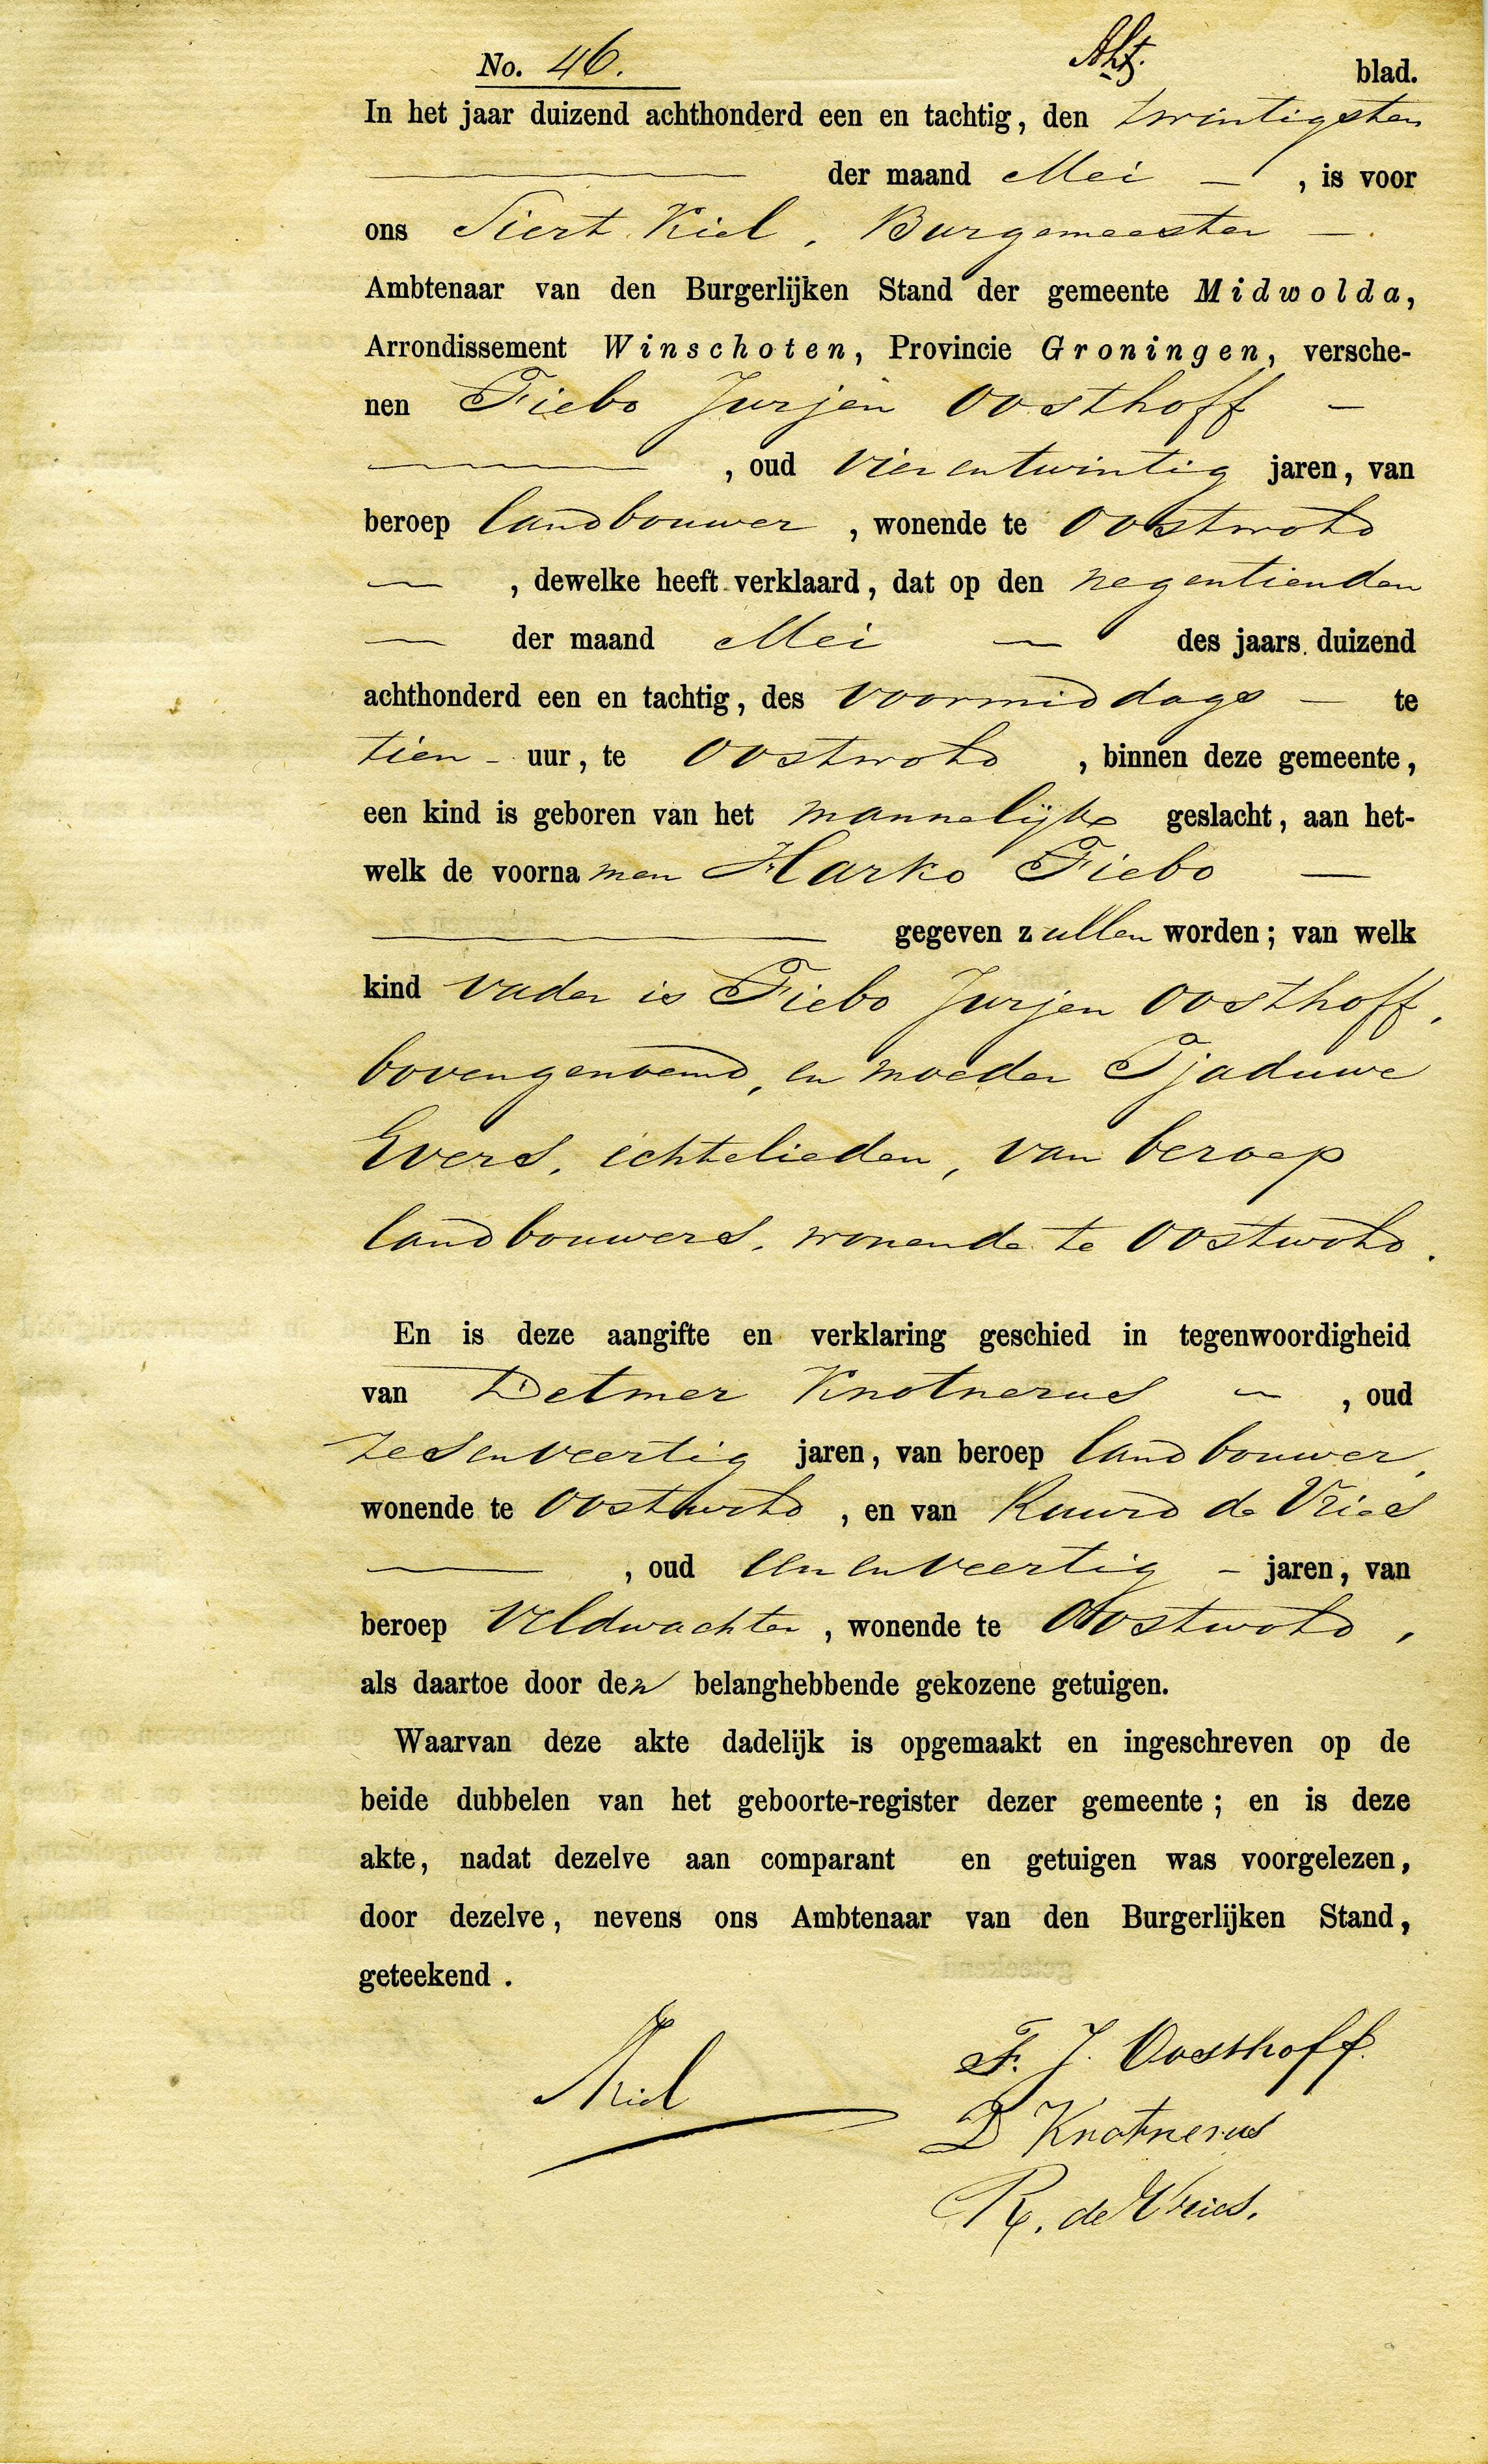 No. 46. blad.
In het jaar duizend achthonderd een en tachtig, den twintigsten
der maand Mei, is voor
ons Siert Kiel, Burgemeester
Ambtenaar van den Burgerlijken Stand der gemeente Midwolda,
Arrondissement Winschoten, Provincie Groningen, versche-
nen Fiebo Jurjen Oosthoff
, oud vierentwintig jaren, van
beroep landbouwer, wonende te Oostwold
, dewelke heeft verklaard, dat op den negentienden
der maand Mei des jaars duizend
achthonderd een en tachtig, des voormiddags te
tien uur, te Oostwold, binnen deze gemeente,
een kind is geboren van het mannelijke geslacht, aan het-
welk de voornamen Harko Fiebo
gegeven zullen worden; van welk
kind vader is Fiebo Jurjen Oosthoff,
bovengenoemd, en moeder Tjaduwe
Evers, echtelieden, van beroep
landbouwers, wonende te Oostwold.
En is deze aangifte en verklaring geschied in tegenwoordigheid
van Detmer Knotnerus, oud
zesenveertig jaren, van beroep landbouwer,
wonende te Oostwold, en van Ruurd de Vries
, oud eenenveertig jaren, van
beroep veldwachter, wonende te Oostwold,
als daartoe door den belanghebbende gekozene getuigen.
Waarvan deze akte dadelijk is opgemaakt en ingeschreven op de
beide dubbelen van het geboorte-register dezer gemeente; en is deze
akte, nadat dezelve aan comparant en getuigen was voorgelezen,
door dezelve, nevens ons Ambtenaar van den Burgerlijken Stand,
geteekend.
Kiel
F. J. Oosthoff.
D Knotnerus
R. de Vries.